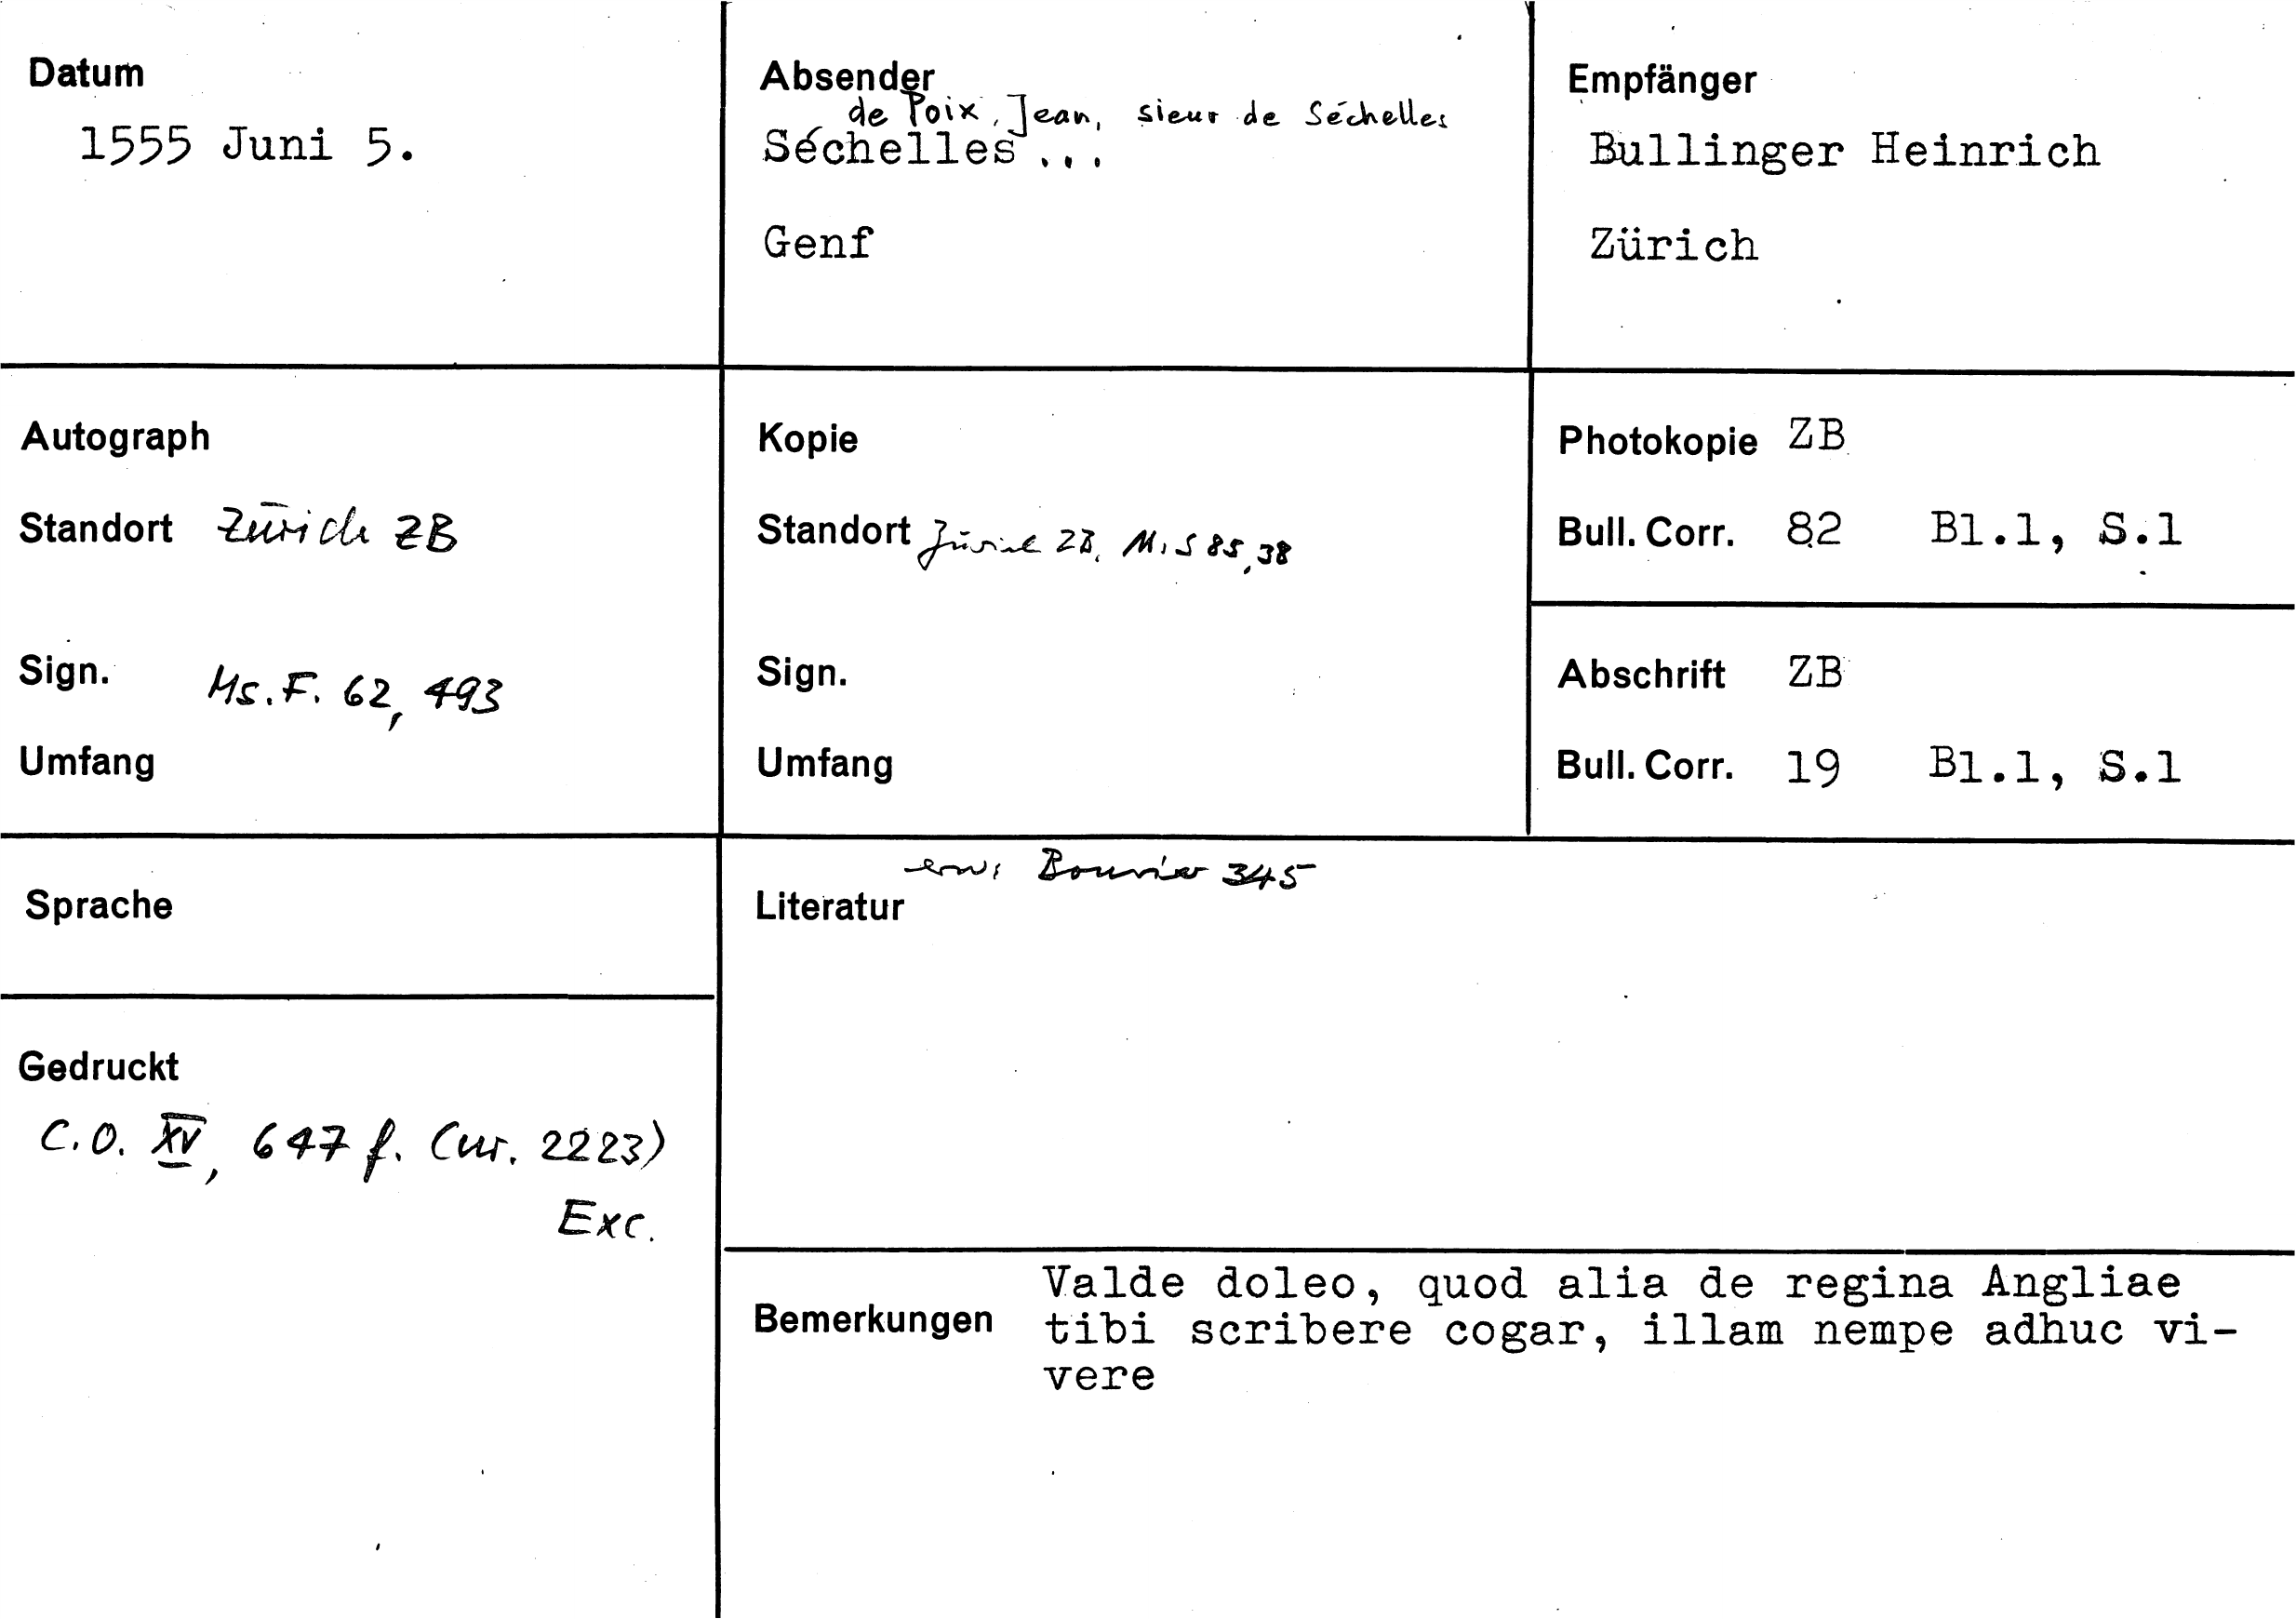 Datum
1555 Juni 5.
Absender
de Poix, Jean, sieur de Séchelles
Séchelles ...
Genf
Empfänger
Bullinger Heinrich
Zürich
Autograph
Standort Zürich ZB
Sign. Ms. F. 62, 493
Umfang
Kopie
Standort Zürich ZB, Ms S 85, 38
Sign.
Umfang
Photokopie ZB
Bull. Corr. 82 Bl.1, S.1
Abschrift ZB
Bull. Corr. 19 Bl.1, S.1
Sprache
Gedruckt
C.O. XV, 647 f. (nr. 2223)
Exc.
erw. Bouvier 345
Literatur
Bemerkungen
Valde doleo, quod alia de regina Angliae
tibi scribere cogar, illam nempe adhuc vi-
vere